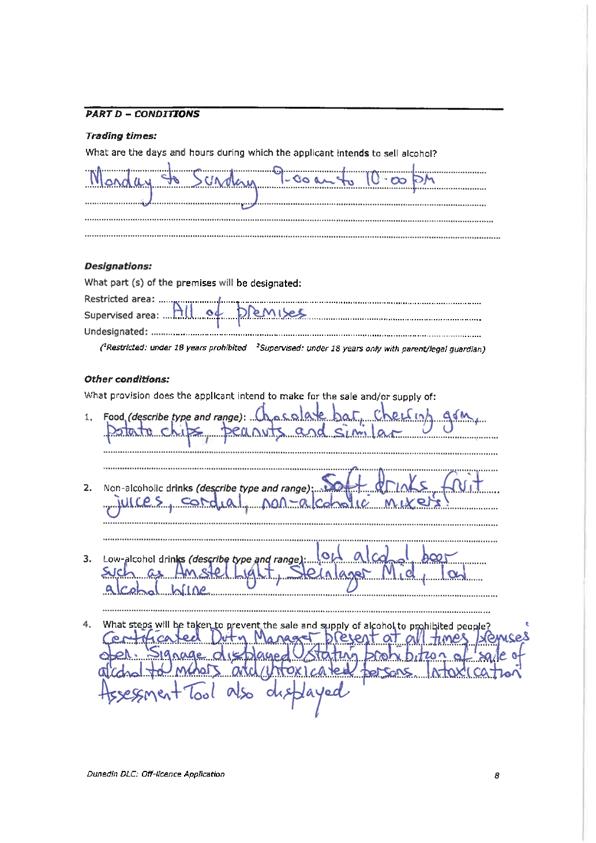 PART D – CONDITIONS
Trading times:
What are the days and hours during which the applicant intends to sell alcohol?
Monday to Sunday 9.00am to 10.00pm
Designations:
What part (s) of the premises will be designated:
Restricted area:
Supervised area: All of premises
Undesignated:
(¹Restricted: under 18 years prohibited ²Supervised: under 18 years only with parent/legal guardian)
Other conditions:
What provision does the applicant intend to make for the sale and/or supply of:
1. Food (describe type and range): Chocolate bar, chewing gum,
potato chips, peanuts and similar
2. Non-alcoholic drinks (describe type and range): Soft drinks fruit
juices, cordial, non-alcoholic mixers.
3. Low-alcohol drinks (describe type and range): low alcohol beer
such as Amstel Light, Steinlager Mid, low
alcohol wine
4. What steps will be taken to prevent the sale and supply of alcohol to prohibited people?
Certificated Duty Manager present at all times premises
open. Signage displayed stating prohibition of sale of
alcohol to minors and intoxicated persons. Intoxication
Assessment Tool also displayed
Dunedin DLC: Off-licence Application 8